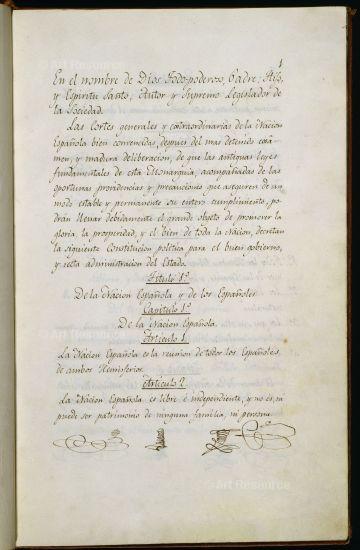 1
En el nombre de Dios Todo-poderoso, Padre, Hijo,
y Espiritu Santo, Autor y Supremo Legislador de
la Sociedad.
Las Cortes generales y extraordinarias de la Nacion
Española bien convencidas, despues del mas detenido exâ-
men, y madura deliberacion, de que las antiguas leyes
fundamentales de esta Monarquia, acompañadas de las
oportunas providencias y precauciones que aseguren de un
modo estable y permanente su entero cumplimiento, po-
drán llenar debidamente el grande objeto de promover la
gloria, la prosperidad, y el bien de toda la Nacion, decretan
la siguiente Constitucion politica para el buen gobierno,
y recta administracion del Estado.
Titulo 1º
De la Nacion Española y de los Españoles.
Capitulo 1º
De la Nacion Española.
Articulo 1.
La Nacion Española es la reunion de todos los Españoles
de ambos hemisferios.
Articulo 2.
La Nacion Española es libre é independiente, y no es, ni
puede ser patrimonio de ninguna familia, ni persona.
© Art Resource